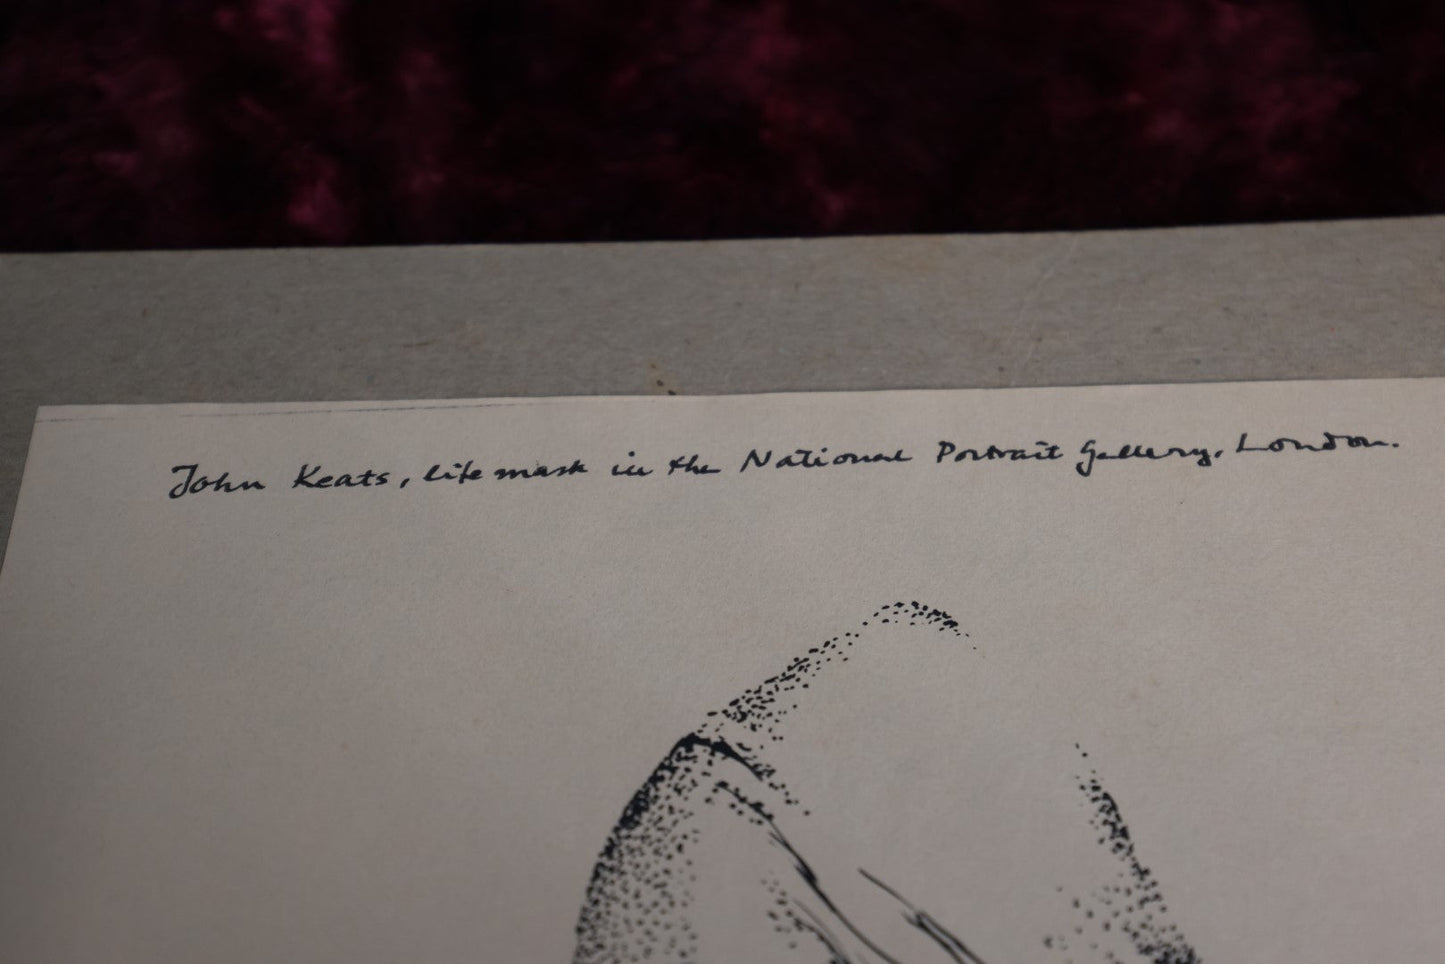 John Keats, life mask in the National Portrait Gallery, London.